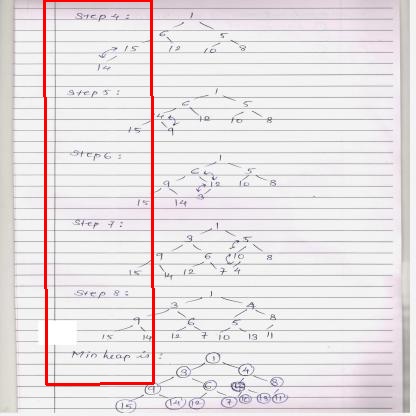 Step 4:
1
6 5
15 12 10 8
14
Step 5:
1
6 5
4 12 10 8
15 9
Step 6:
1
6 5
9 12 10 8
15 14 3
Step 7:
1
3 5
9 6 10 8
15 14 12 7 4
Step 8:
1
3 4
9 6 5 8
15 14 12 7 10 13 11
Min heap is:
1
3 4
9 6 8
15 14 12 7 10 13 11